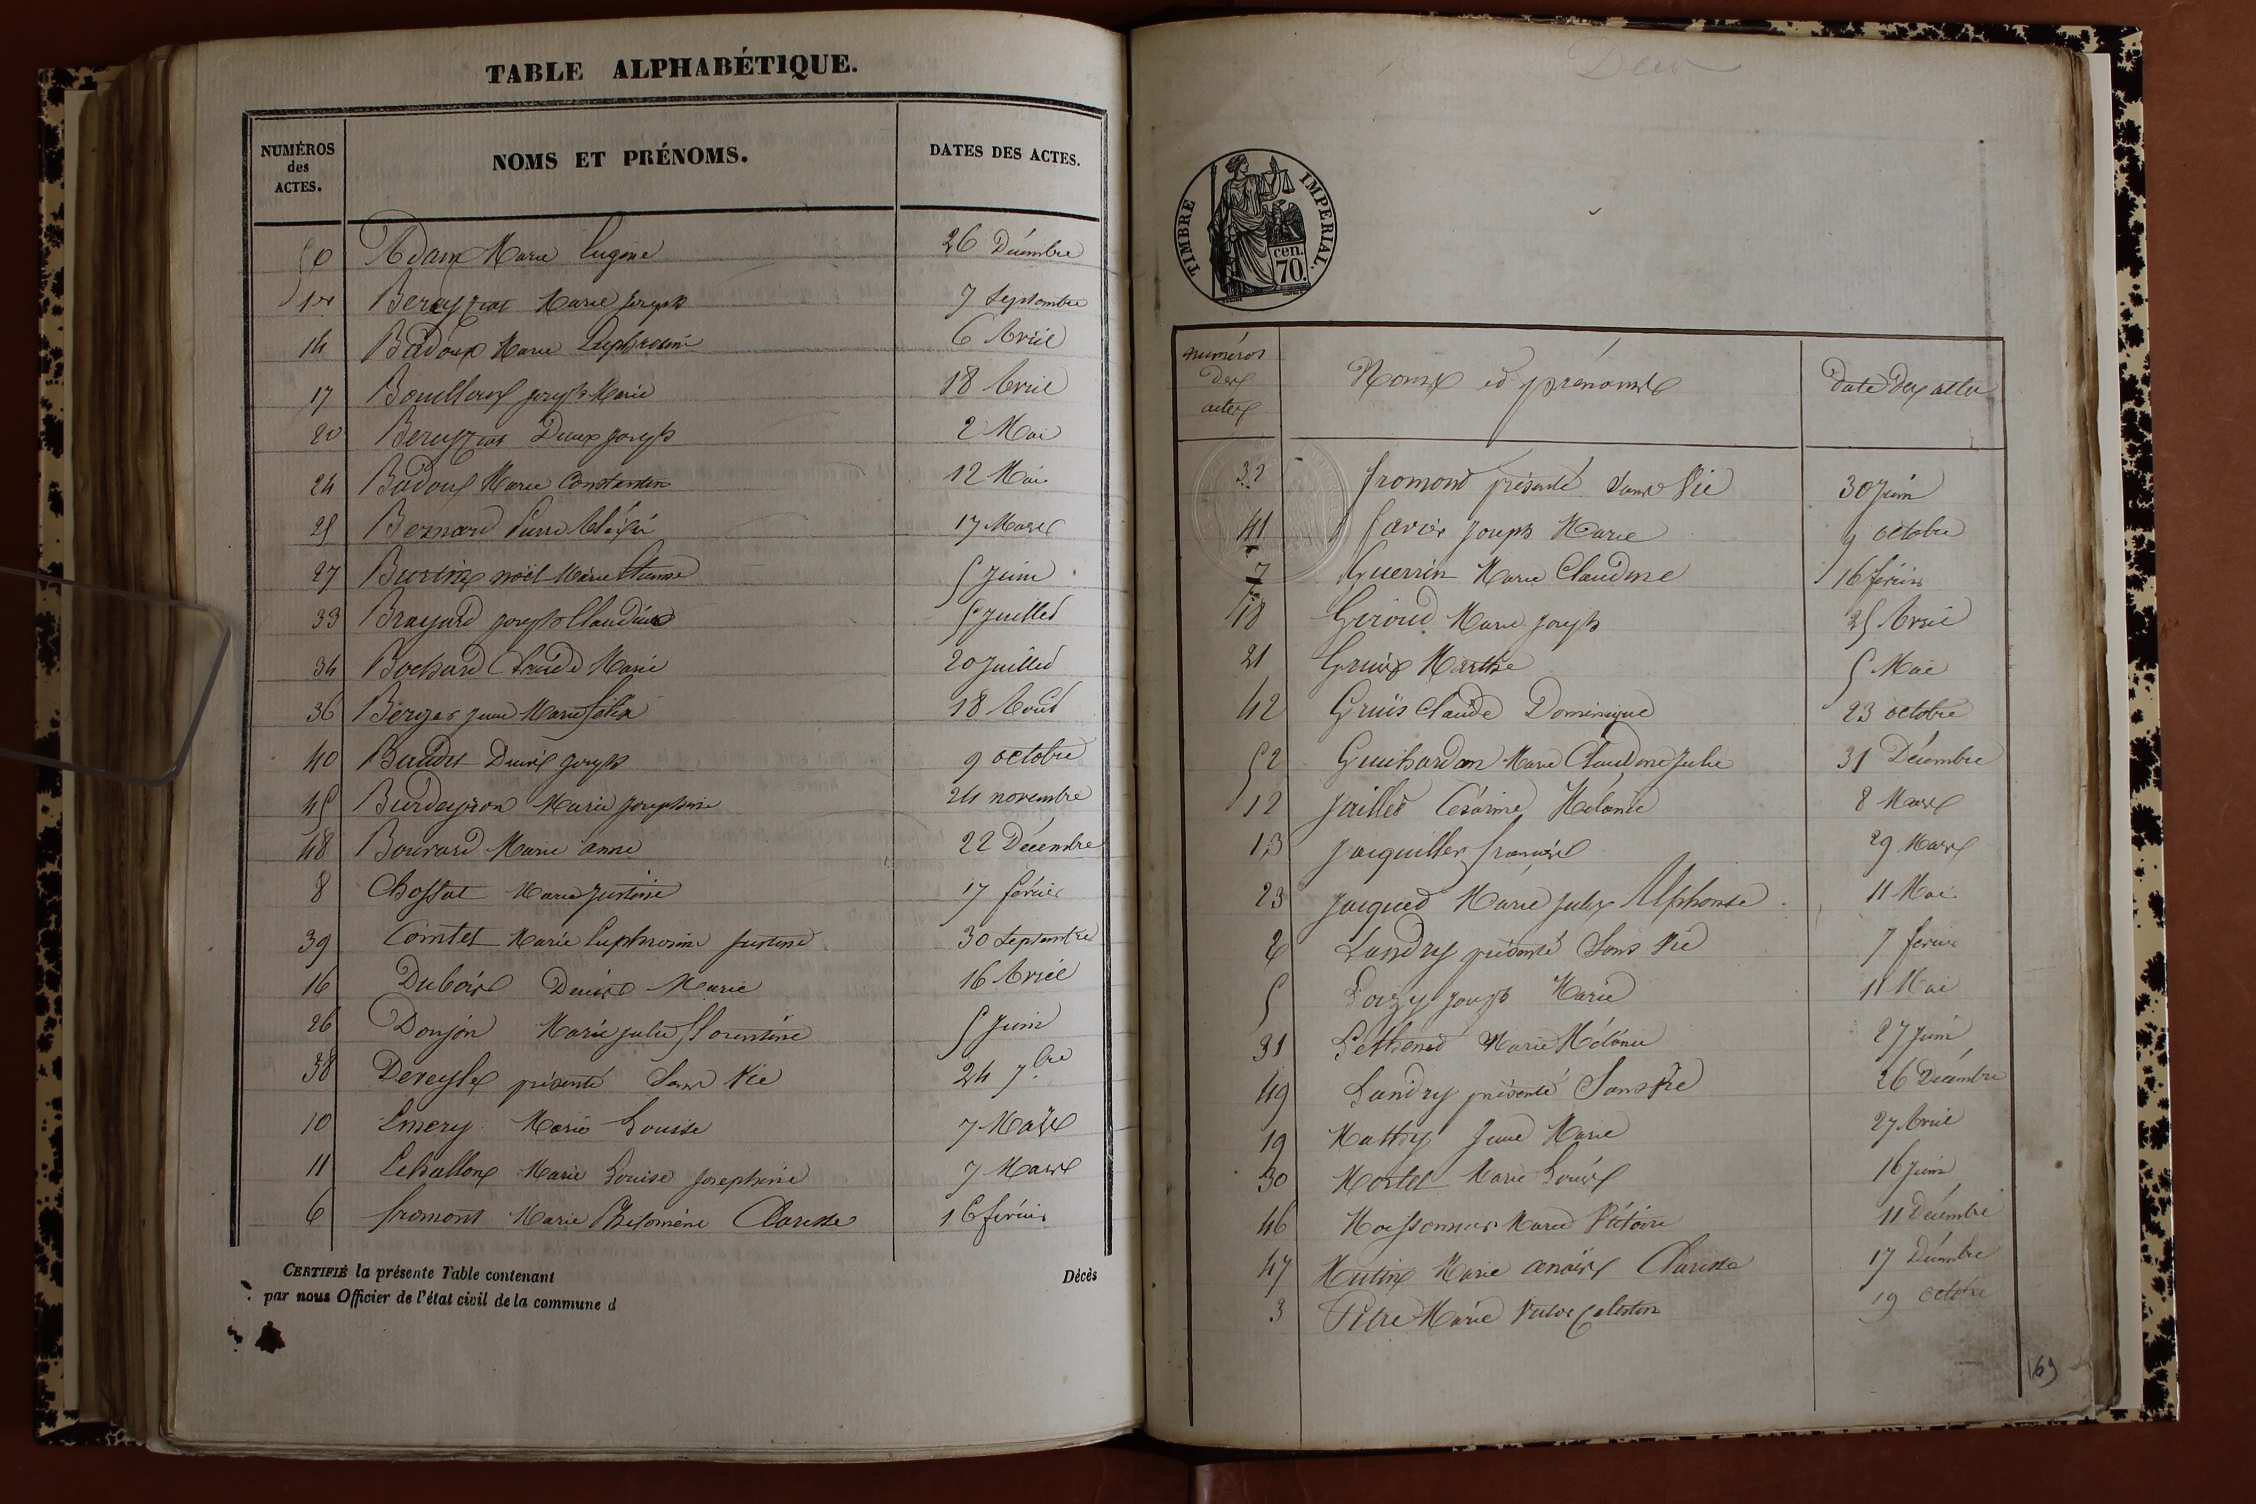 TABLE ALPHABÉTIQUE.
NUMÉROS des ACTES. NOMS ET PRÉNOMS. DATES DES ACTES.
50 Adam Marie Eugène 26 Décembre
Marie Joseph 7 Septembre
14 Badoux Marie Euphrosine 6 Avril
17 Bouilloux Joseph Marie 18 Avril
20 Joseph 2 Mai
24 Badoux Marie Constantin 12 Mai
25 Bernard Pierre 17 Mars
27 Burtin Noël Marie Etienne 5 Juin
33 Brayard Joseph Claudius 5 Juillet
34 Bochard Claude Marie 20 Juillet
36 Berger Jean Marie Félix 18 Août
40 Baudet Denis Joseph 9 octobre
45 Burdeyron Marie Josephine 24 novembre
48 Bouvard Marie Anne 22 Décembre
8 Chossat Marie Justine 17 février
39 Comtet Marie Euphrosine Justine 30 Septembre
16 Dubois Denise Marie 16 Avril
26 Donjon Marie Julie Florentine 5 Juin
38 présenté Sans Vie 24 7.bre
10 Emery Marie Louise 7 Mars
11 Echallon Marie Louise Josephine 7 Mars
6 fromont Marie Philomène Clarisse 16 février
CERTIFIÉ la présente Table contenant Décès
par nous Officier de l'état civil de la commune d
TIMBRE IMPERIAL.
cen. 70.
numéros des actes Noms et prénoms date des actes
32 fromont présenté Sans Vie 30 Juin
41 favier Joseph Marie 9 octobre
7 Guerrin Marie Claudine 16 février
18 Giroud Marie Joseph 25 Avril
21 Gruis Marthe 5 Mai
42 Gruis Claude Dominique 23 octobre
52 Guichardan Marie Claudine Julie 31 Décembre
12 Jaillet Césarine Mélanie 8 Mars
13 Jacquiller François 29 Mars
23 Jacquet Marie Jules Alphonse 11 Mai
2 Landry présenté Sans Vie 7 février
5 Joseph Marie 11 Mai
31 Marie Mélanie 27 Juin
49 Landry présenté Sans Vie 26 Décembre
19 Mathy Jeane Marie 27 Avril
30 Mortel Marie Louis 16 Juin
46 Moissonnier Marie Victoire 11 Décembre
47 Mutin Marie Anaïs Clarisse 17 Décembre
3 Pitre Marie Victor Célestin 19 octobre
169